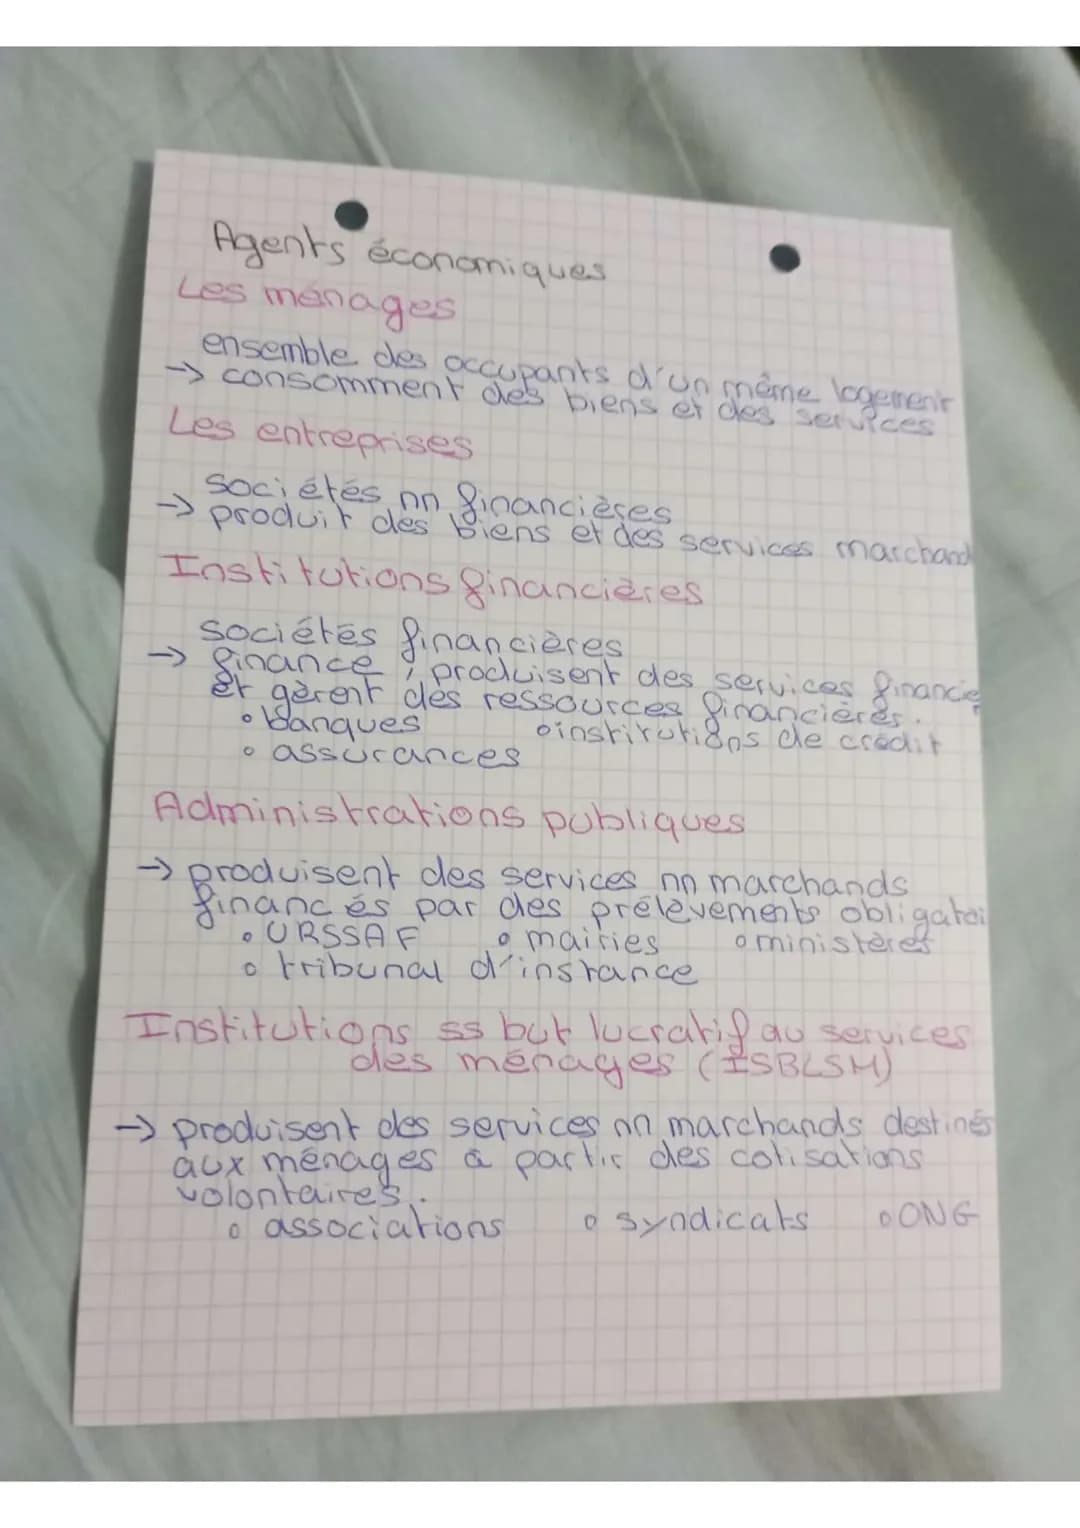 Agents économiques
Les ménages
ensemble des occupants d'un même logement
→ consomment des biens et des services
Les entreprises
sociétés nn financières
→ produit des biens et des services marchand
Institutions financières
sociétés financières
→ finance, produisent des services financie
et gèrent des ressources financières.
• banques • institutions de crédit
• assurances
Administrations publiques
→ produisent des services nn marchands
financés par des prélèvements obligatoi
• URSSAF • mairies • ministères
• tribunal d'instance
Institutions ss but lucratif au services
des ménages (ISBLSM)
→ produisent des services nn marchands destinés
aux ménages à partir des cotisations
volontaires.
• associations • syndicats • ONG